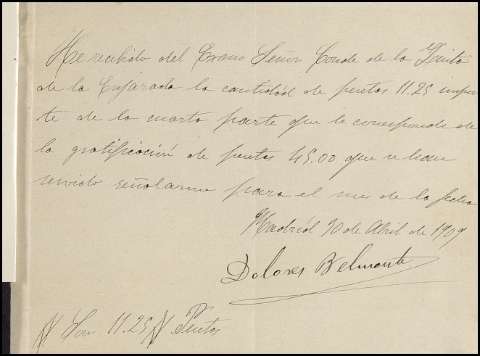 He recibido del Excmo Señor Conde de la Quinta
de la Enjarada la cantidad de psetas 11.25 impor
te de la cuarta parte que le corresponde de
la gratificación de psetas 45.00 que se han
servido señalarme para el mes de la fecha
Madrid 10 de Abril de 1909
Dolores Belmonte
Son 11.25 Psetas